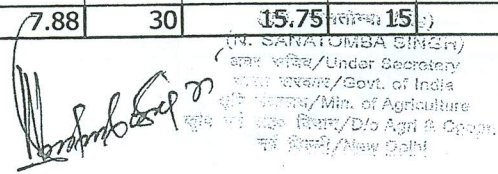 7.88 30 15.75 15
(N. SANATOMBA SINGH)
अवर सचिव/Under Secretary
भारत सरकार/Govt. of India
कृषि मंत्रालय/Min. of Agriculture
कृषि एवं सह० विभाग/D/o Agri & Coopn.
नई दिल्ली/New Delhi